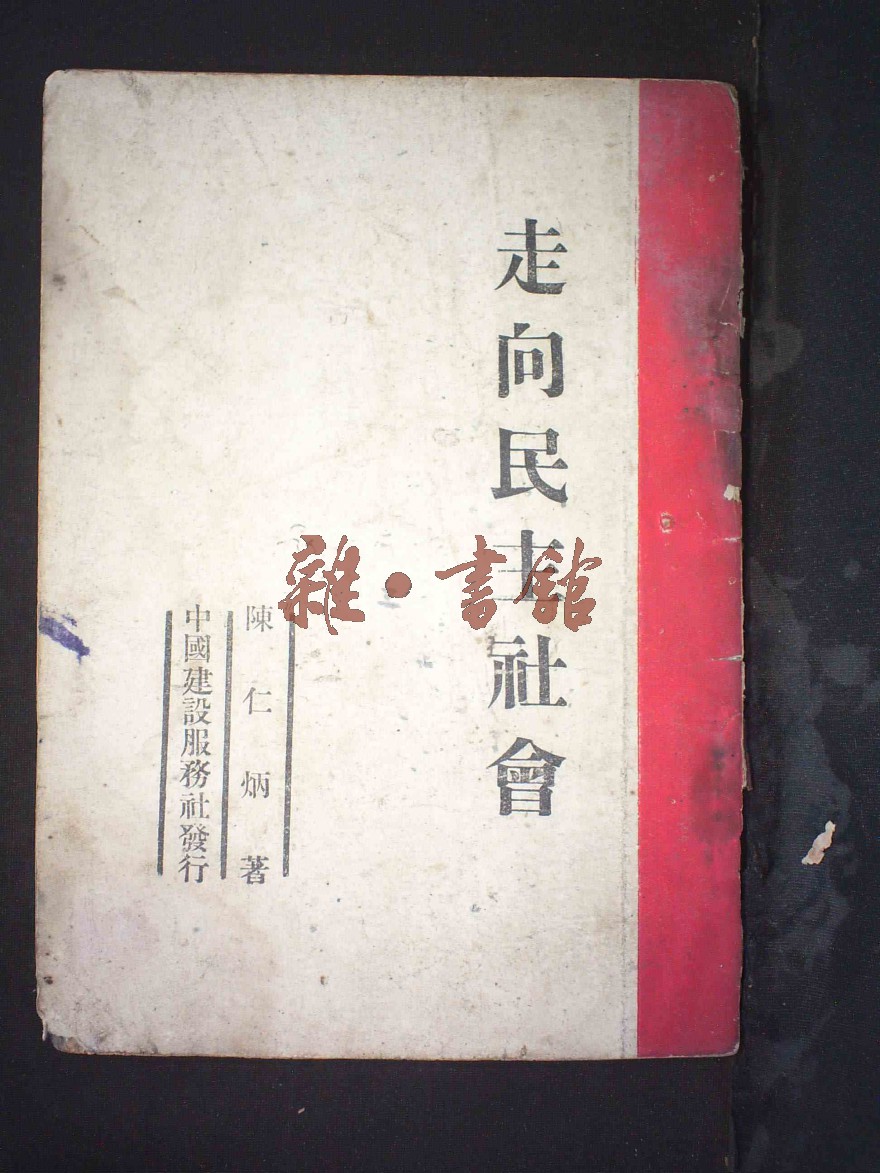 走向民主社會
陳仁炳著
中國建設服務社發行
雜·書館